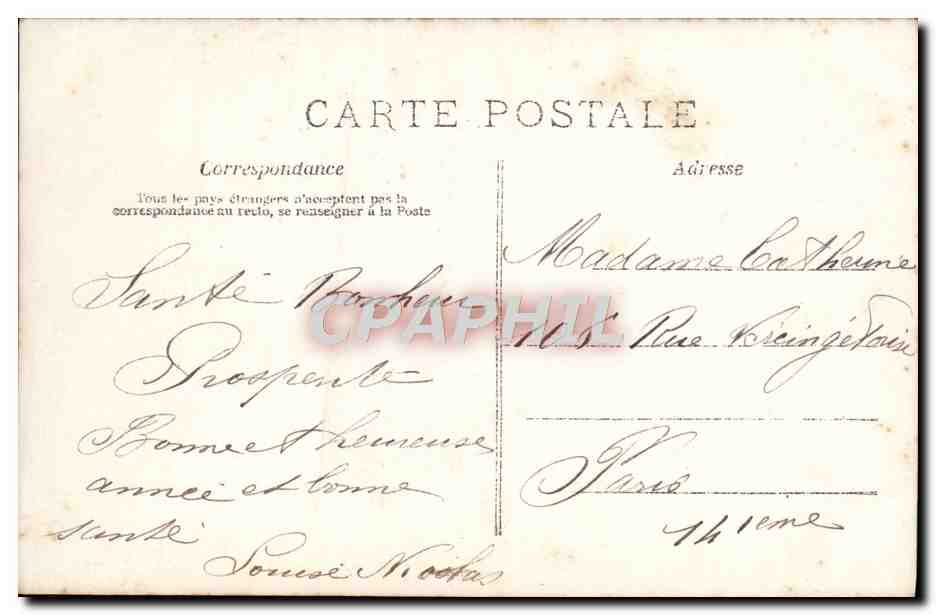 CARTE POSTALE
Correspondance
Tous les pays étrangers n'acceptent pas la
correspondance au recto, se renseigner à la Poste
Santé Bonheur
Prosperite
Bonne et heureuse
année et bonne
santé
Louise Nicolas
Adresse
Madame Catherine
Rue
Paris
14 ieme
CPAPHIL